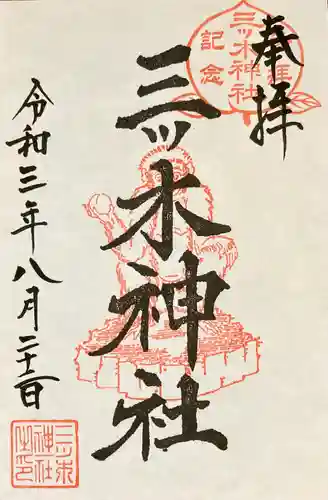 奉拝
三ッ木神社
参拝
記念
三ッ木神社
令和三年八月二十二日
三ッ木
神社